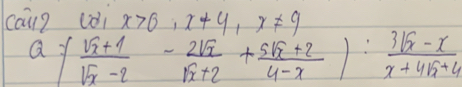 Câu 2 Với x>0, x≠4, x≠9
Q = ( \frac{√x+1}{√x-2} - \frac{2√x}{√x+2} + \frac{5√x+2}{4-x} ) : \frac{3√x-x}{x+4√x+4}